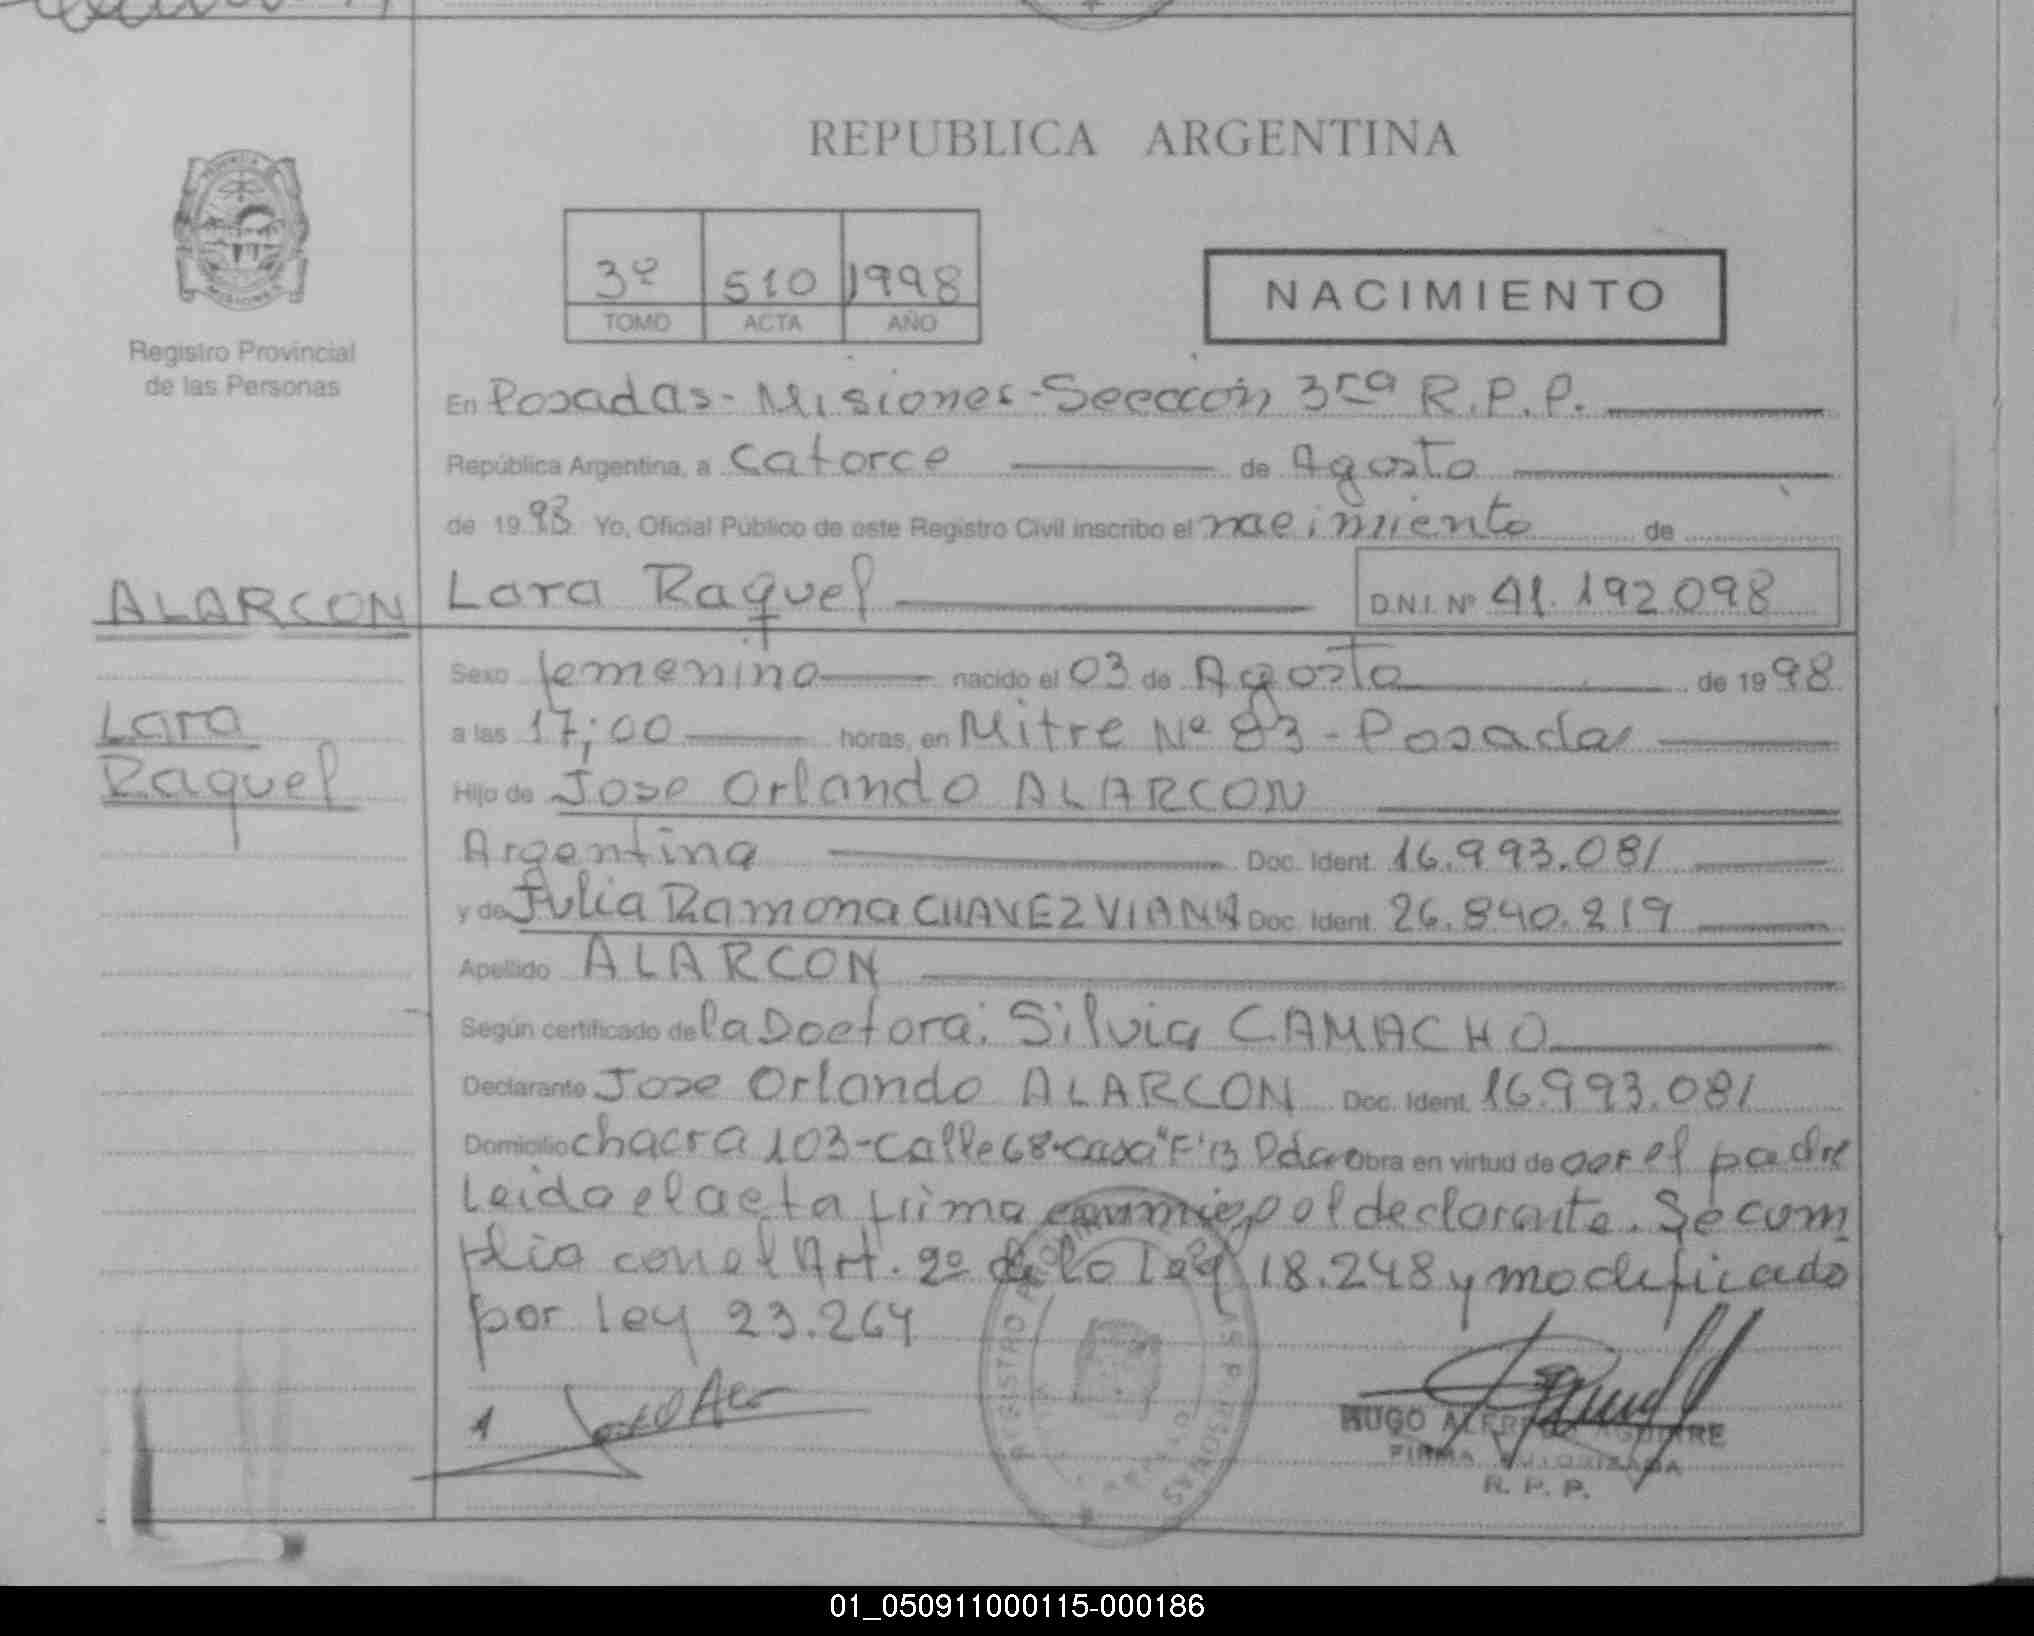 REPUBLICA ARGENTINA
3º 510 1998
TOMO ACTA AÑO
NACIMIENTO
Registro Provincial
de las Personas
En Posadas - Misiones - Sección 3ra R.P.P.
República Argentina, a catorce de Agosto
de 1998 Yo, Oficial Público de este Registro Civil inscribo el nacimiento de
ALARCON
Lara Raquel D.N.I. Nº 41.192.098
Sexo femenino nacido el 03 de Agosto de 1998
Lara
Raquel
a las 17;00 horas, en Mitre Nº 83 - Posadas
Hijo de Jose Orlando ALARCON
Argentina Doc. Ident. 16.993.081
y de Julia Ramona CHAVEZ VIANA Doc. Ident. 26.840.219
Apellido ALARCON
Según certificado de la Doctora: Silvia CAMACHO
Declarante Jose Orlando ALARCON Doc. Ident. 16.993.081
Domicilio chacra 103 - calle 68 - casa "F" 13 Pdas Obra en virtud de ser el padre
Leida el acta firma conmigo el declarante. Se cum
plio con el Art. 2º de la Ley 18.248 y modificado
por ley 23.264
REGISTRO PROVINCIAL DE LAS PERSONAS
HUGO ALFREDO AGUIRRE
FIRMA AUTORIZADA
R. P. P.
01_050911000115-000186